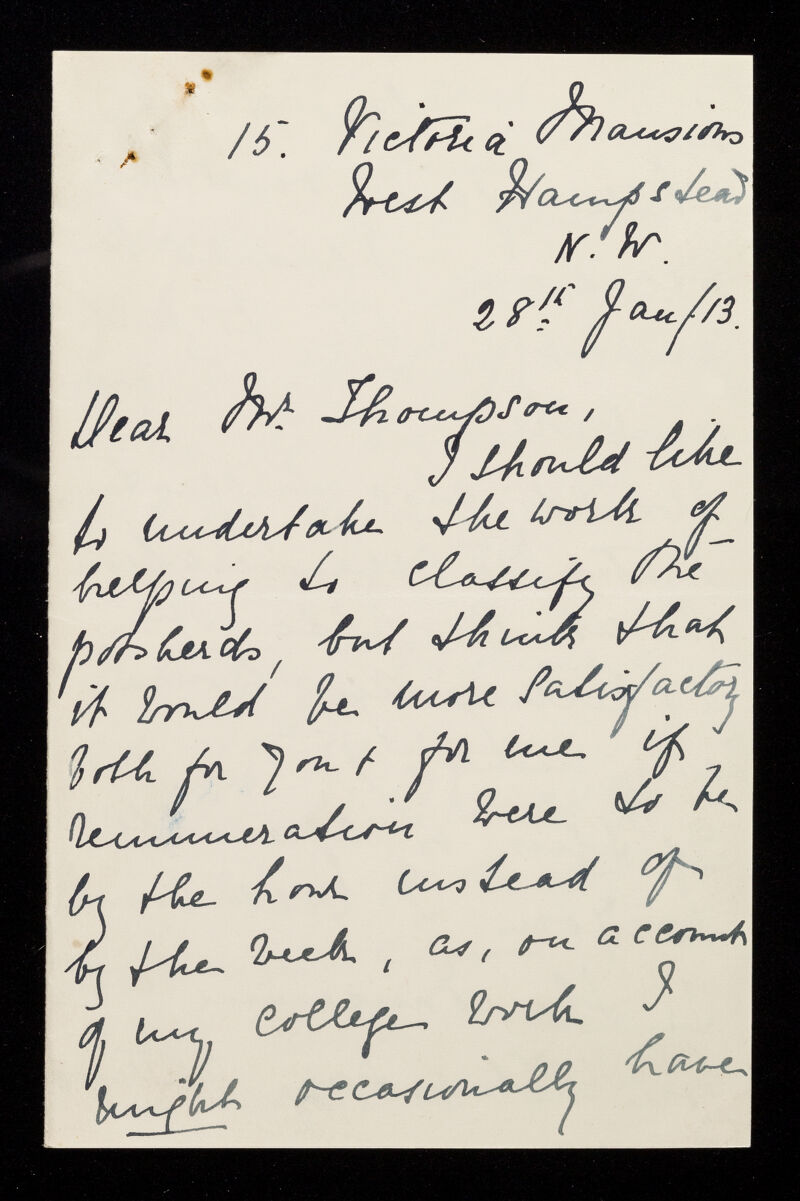 15. Victoria Mansions
West Hampstead
N.W.
28th Jan/13.
Dear Mr. Thompson,
I should like
to undertake the work of
helping to classify the
potsherds, but think that
it would be more satisfactory
both for you & for me if
remuneration were to be
by the hour instead of
by the week, as, on account
of my college work I
might occasionally have